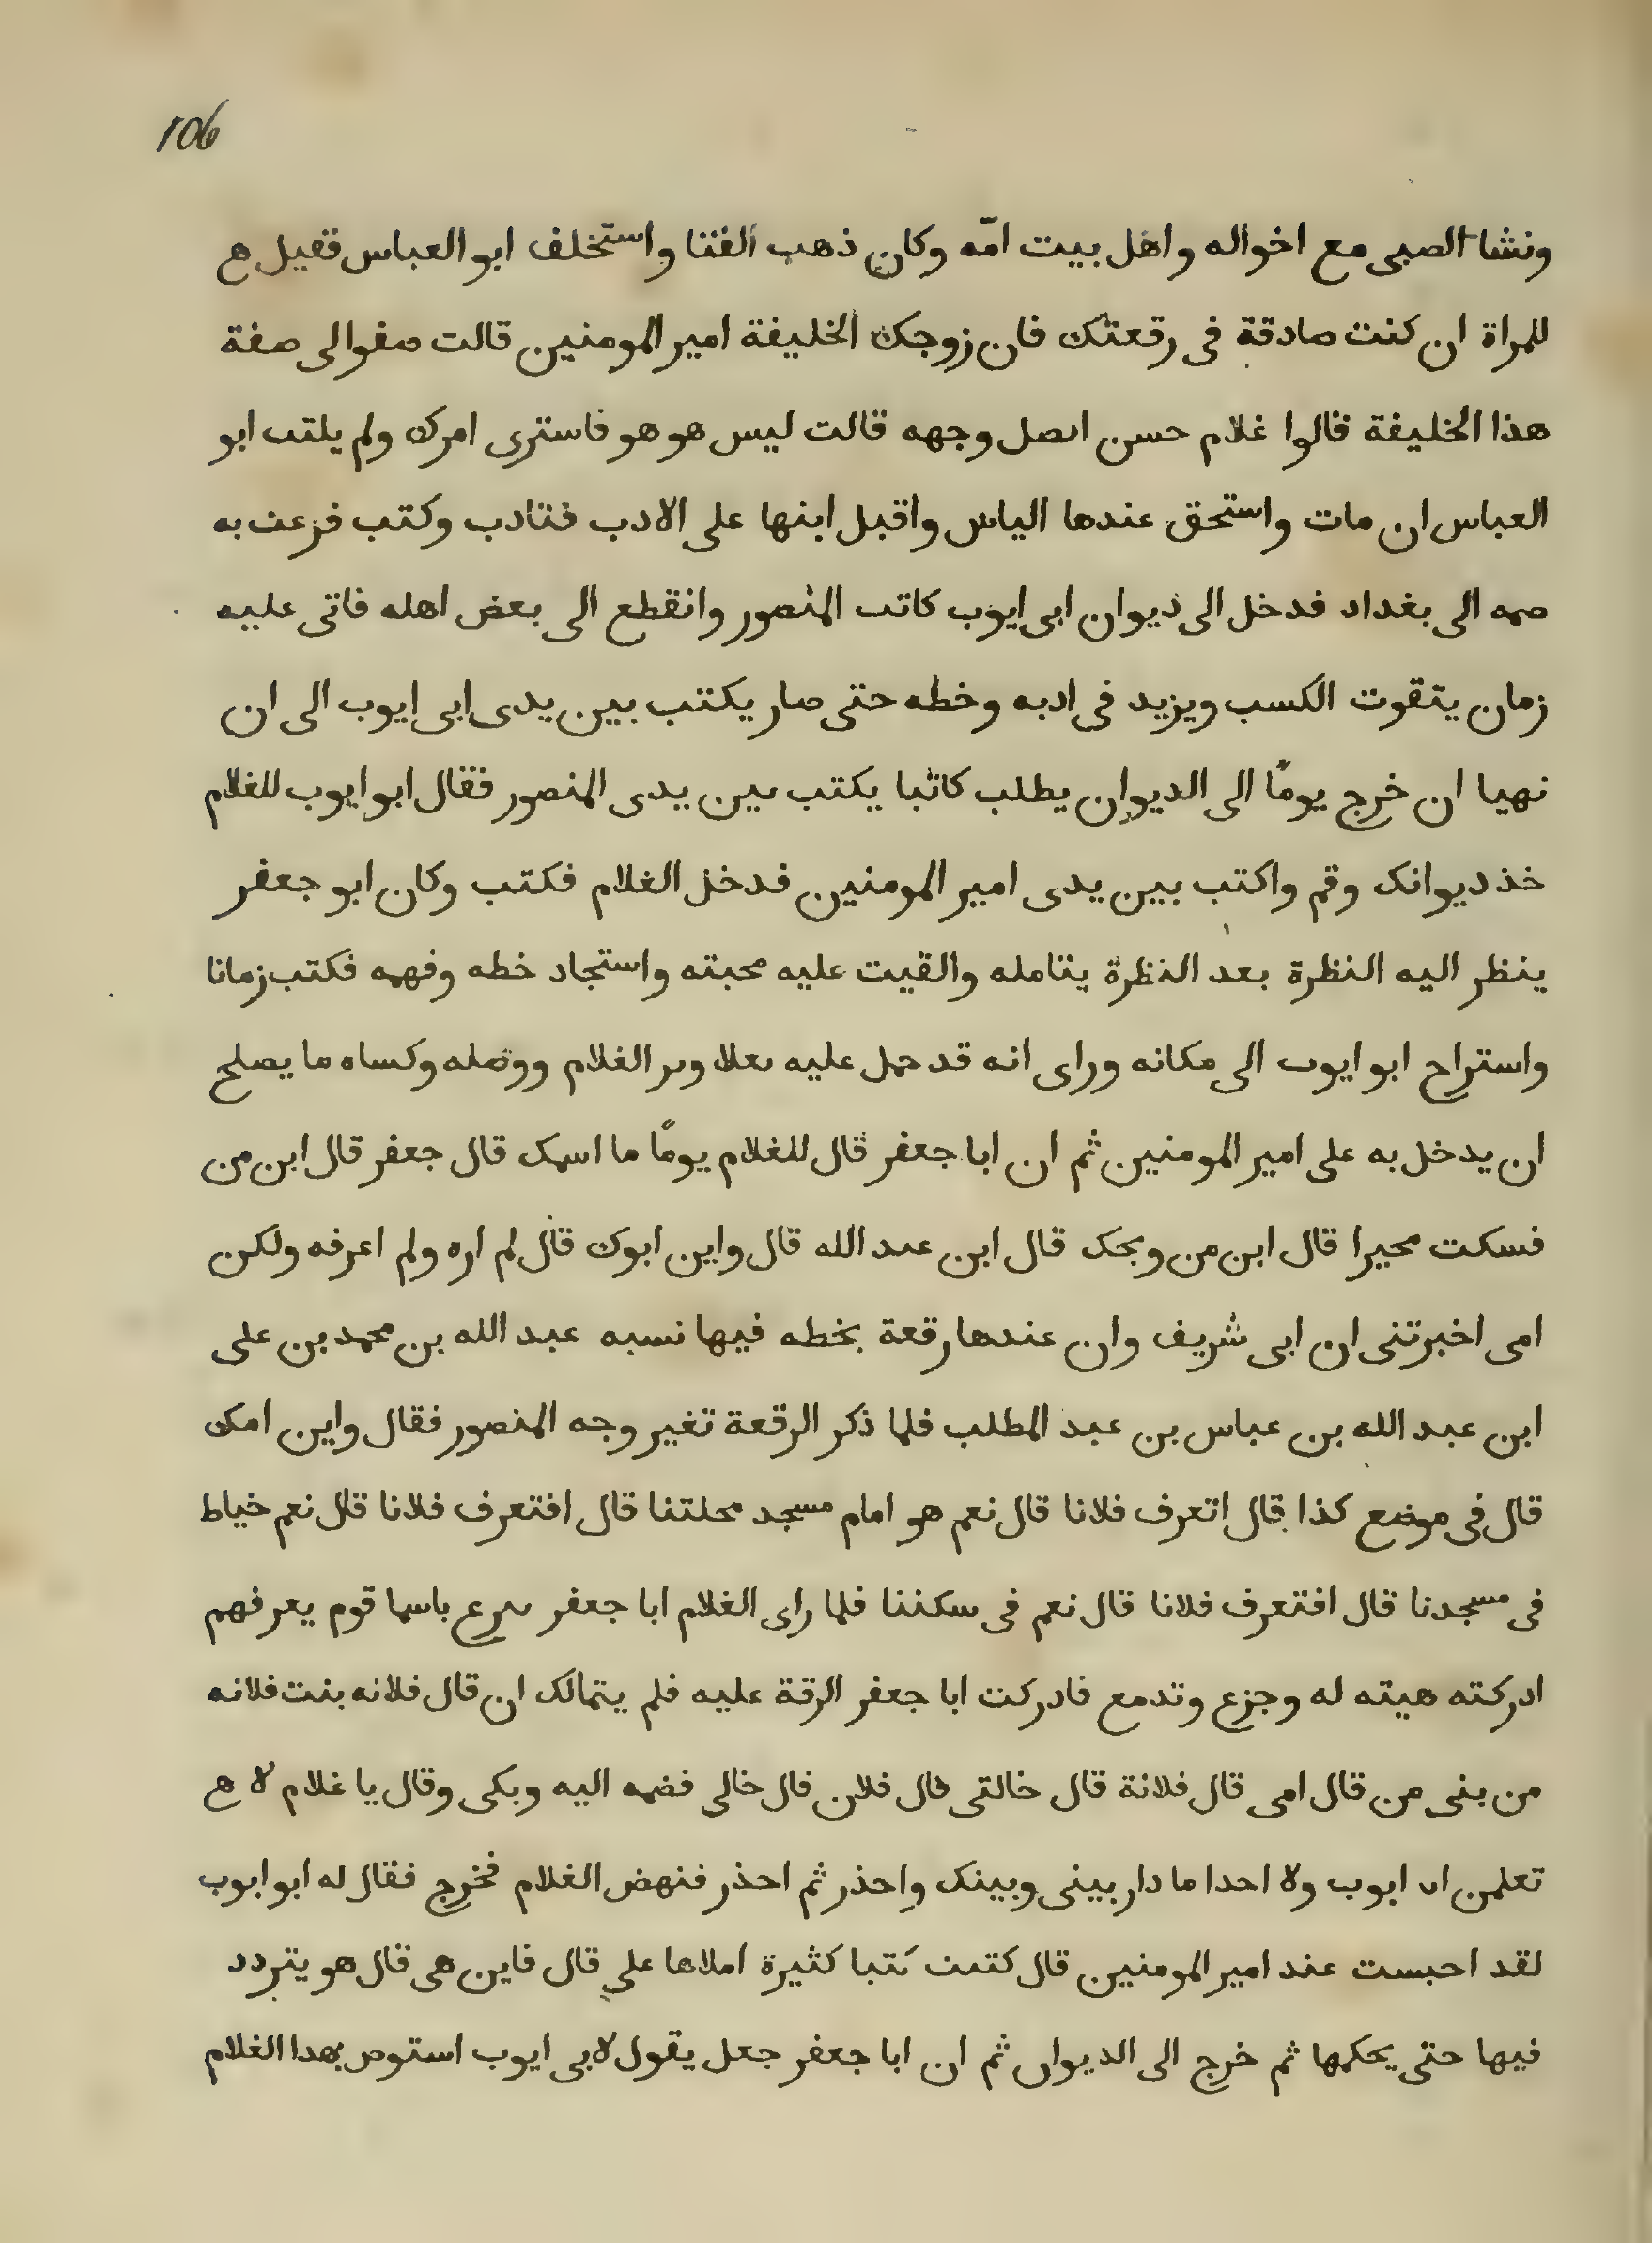 106
ونشا الصبى مع اخواله واهل بيت امّه وكان ذهب الفتنا واستخلف ابو العباس فقيل ھ
للمراة ان كنت صادقة فى رقعتك فان زوجك الخليفة امير المومنين قالت صفوا لى صفة
هذا الخليفة قالوا غلام حسن اىصل وجهه قالت ليس هو هو فاسترى امرك ولم يلىث ابو
العباس ان مات واستحق عندها الياس واقبل ابنها على الادب فتادب وكتب فرعت به
صمه الى بغداد فدخل الى ديوان ابى ايوب كاتب المنصور وانقطع الى بعض اهله فاتى عليه
زمان يتقوت الكسب ويزيد فى ادبه وخطه حتى صار يكتب بين يدى ابى ايوب الى ان
نهيا ان خرج يومًا الى الديوان يطلب كاتبا يكتب بين يدى المنصور فقال ابو ايوب للغلام
خذ ديوانك وقم واكتب بين يدى امير المومنين فدخل الغلام فكتب وكان ابو جعفر
ينظر اليه النظرة بعد النظرة يتامله والقيت عليه محبته واستجاد خطه وفهمه فكتب زمانا
واستراح ابو ايوب الى مكانه وراى انه قد حمل عليه ىعلا وبر الغلام ووصله وكساه ما يصلح
ان يدخل به على امير المومنين ثم ان ابا جعفر قال للغلام يومًا ما اسمك قال جعفر قال ابن من
فسكت محيرا قال ابن من ويحك قال ابن عبد الله قال واين ابوك قال لم اره ولم اعرفه ولكن
امى اخبرتنى ان ابى شريف وان عندها رقعة بخطه فيها نسبه عبد الله بن محمد بن على
ابن عبد الله بن عباس بن عبد المطلب فلما ذكر الرقعة تغير وجه المنصور فقال واين امك
قال فى موضع كذا قال اتعرف فلانا قال نعم هو امام مسجد محلتنا قال افتعرف فلانا قال نعم خياط
فى مسجدنا قال افتعرف فلانا قال نعم فى سكننا فلما راى الغلام ابا جعفر ىىرع باسما قوم يعرفهم
ادركته هيته له وجزع وتدمع فادركت ابا جعفر الرقة عليه فلم يتمالك ان قال فلانه بنت فلانه
من بنى من قال امى قال فلانة قال خالتى قال فلان قال خالى فضمه اليه وبكى وقال يا غلام لا ھ
تعلمن ابا ايوب ولا احدا ما دار بينى وبينك واحذر ثم احذر فنهض الغلام فخرج فقال له ابو ايوب
لقد احبست عند امير المومنين قال كتبت كتبا كثيرة املاها على قال فاين هى قال هو يتردد
فيها حتى يحكمها ثم خرج الى الديوان ثم ان ابا جعفر جعل يقول لابى ايوب استوص بهدا الغلام